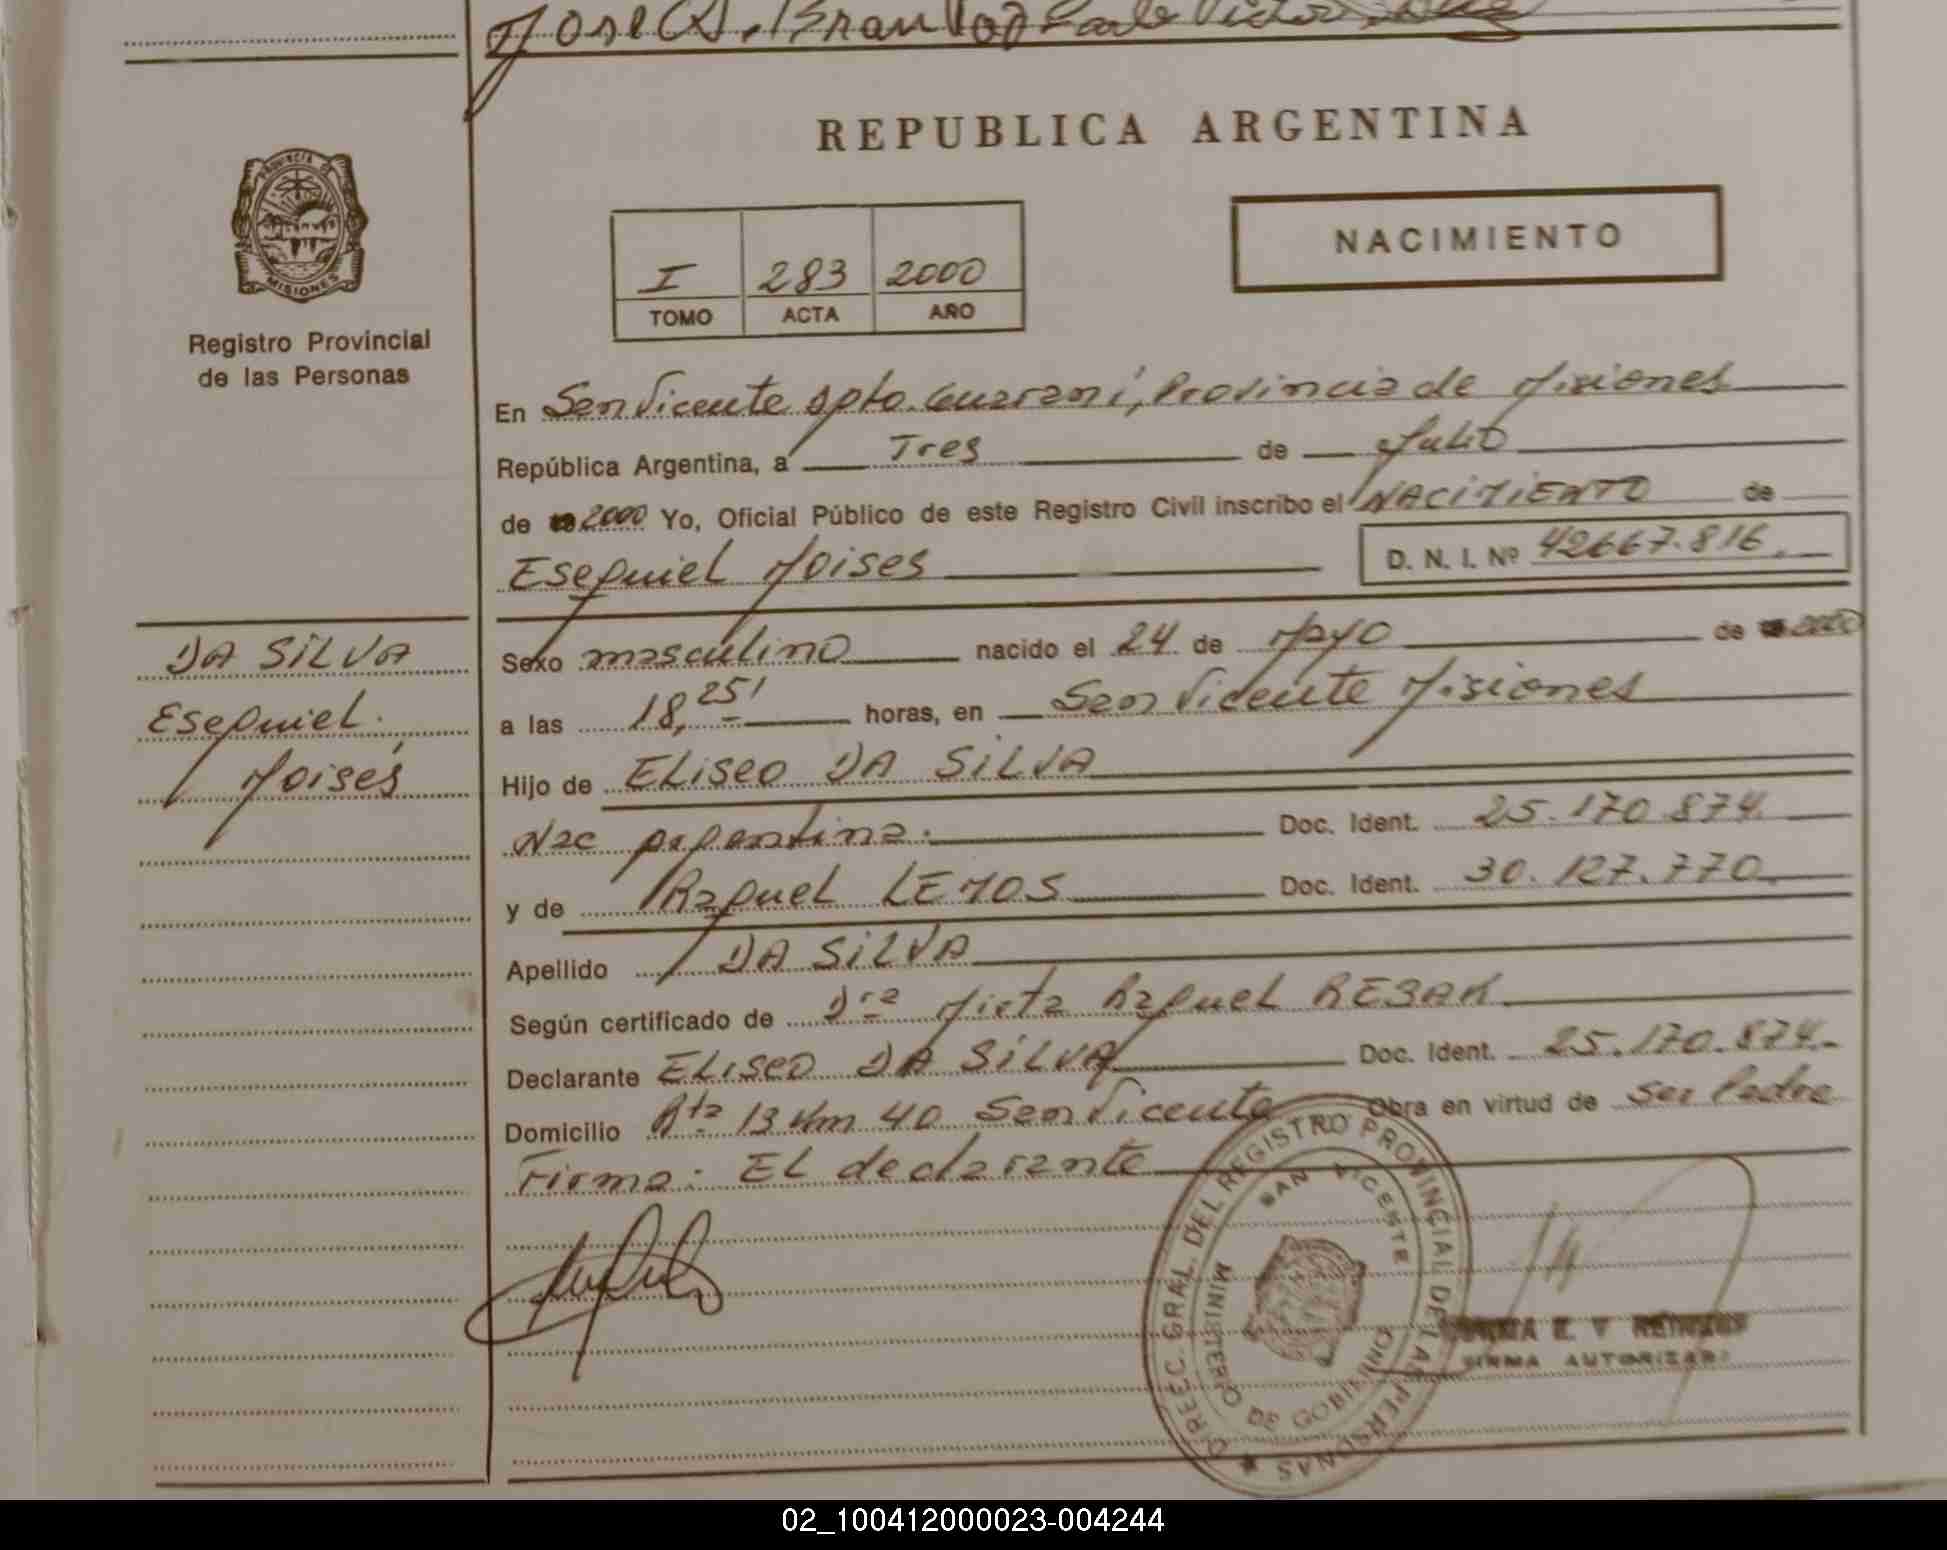 PROVINCIA DE
MISIONES
Registro Provincial
de las Personas
DA SILVA
Esequiel
Moisés
REPUBLICA ARGENTINA
I 283 2000
TOMO ACTA AÑO
NACIMIENTO
En San Vicente Dpto. Guaraní, Provincia de Misiones
República Argentina, a Tres de Julio
de 2000 Yo, Oficial Público de este Registro Civil inscribo el NACIMIENTO de
Esequiel Moises D. N. I. Nº 42667.816.
Sexo masculino nacido el 24 de Mayo de 2000
a las 18,25' horas, en San Vicente Misiones
Hijo de ELiseo DA SiLVA
Nac Argentina. Doc. Ident. 25.170.874.
y de Raquel LEMOS Doc. Ident. 30.127.770.
Apellido DA SiLVA
Según certificado de Dra Mirta Raquel
Declarante ELiseo DA SiLVA Doc. Ident. 25.170.874.
Domicilio Rta 13 Km 40 San Vicente Obra en virtud de ser Padre
Firma: EL declarante
DIREC. GRAL. DEL REGISTRO PROVINCIAL DE LAS PERSONAS
SAN VICENTE
MINISTERIO DE GOBIERNO
FIRMA AUTORIZADA
02_100412000023-004244